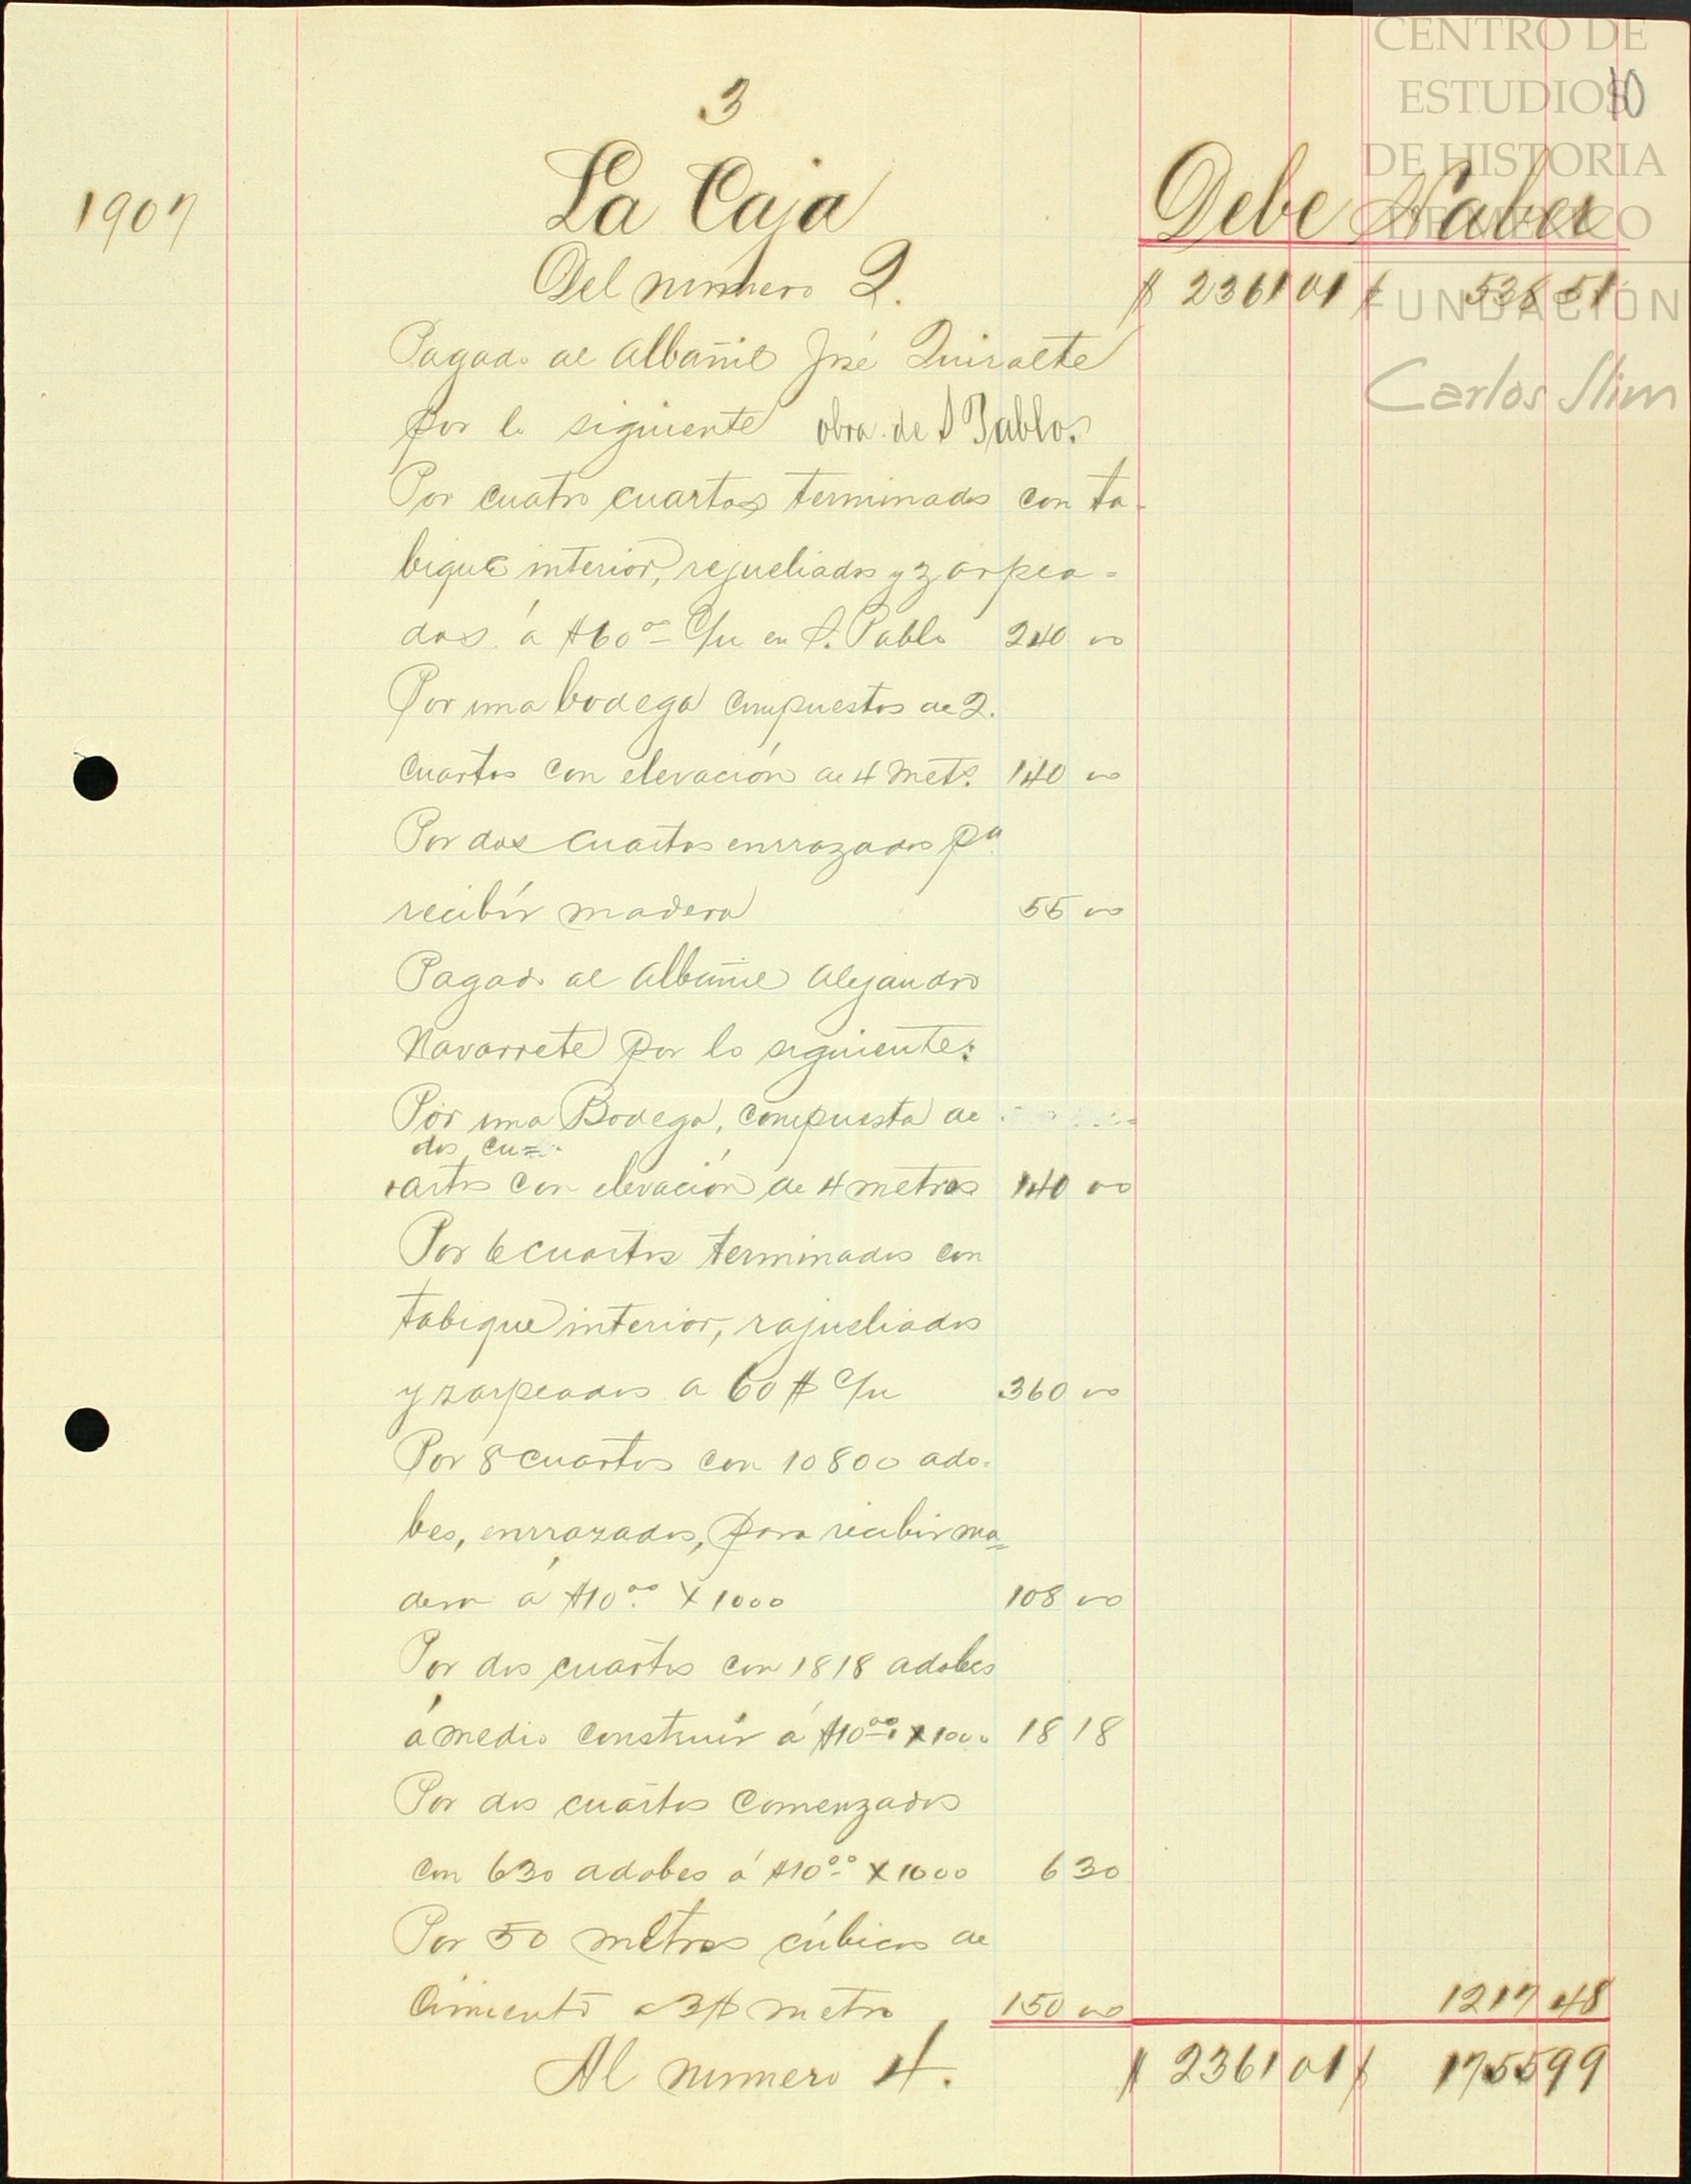 CENTRO DE
ESTUDIOS
10
DE HISTORIA
DE MÉXICO
FUNDACIÓN
Carlos Slim
3
1907 La Caja Debe Haber
Del número 2. $ 2361 01 $ 538 51
Pagado al albañil José Quiralte
por lo siguiente obra de S Pablo.
Por cuatro cuartos terminados con ta-
bique interior, rejueliados y zarpea=
dos á $60 00 C/u en S. Pablo 240 00
Por una bodega compuestos de 2.
Cuartos con elevación de 4 mets. 140 00
Por dos cuartos enrrazados pa
recibir madera 55 00
Pagado al albañil Alejandro
Navarrete por lo siguiente:
Por una Bodega, compuesta de
dos cu=
artos con elevación de 4 metros 140 00
Por 6 cuartos terminados con
tabique interior, rajueliados
y zarpeados a 60 $ C/u 360 00
Por 8 cuartos con 10800 ado-
bes, enrrazados, para recibir ma=
dera á $10 00 X 1000 108 00
Por dos cuartos con 1818 adobes
á medio construir á $10 00 X 1000 18 18
Por dos cuartos comenzados
con 630 adobes á $10 00 X 1000 6 30
Por 50 metros cúbicos de
Cimiento a 3 $ metro 150 00 1217 48
Al número 4. $ 2361 01 $ 1755 99